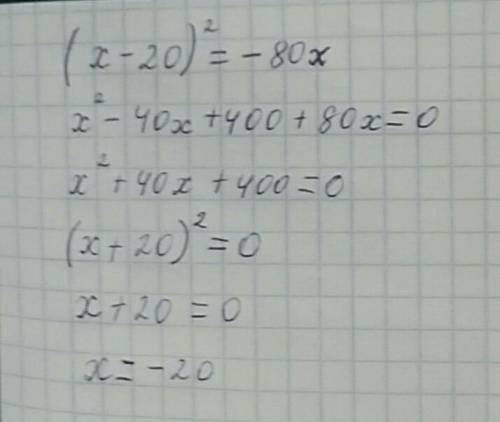 (x-20)²=-80x
x²-40x+400+80x=0
x²+40x+400=0
(x+20)²=0
x+20=0
x=-20